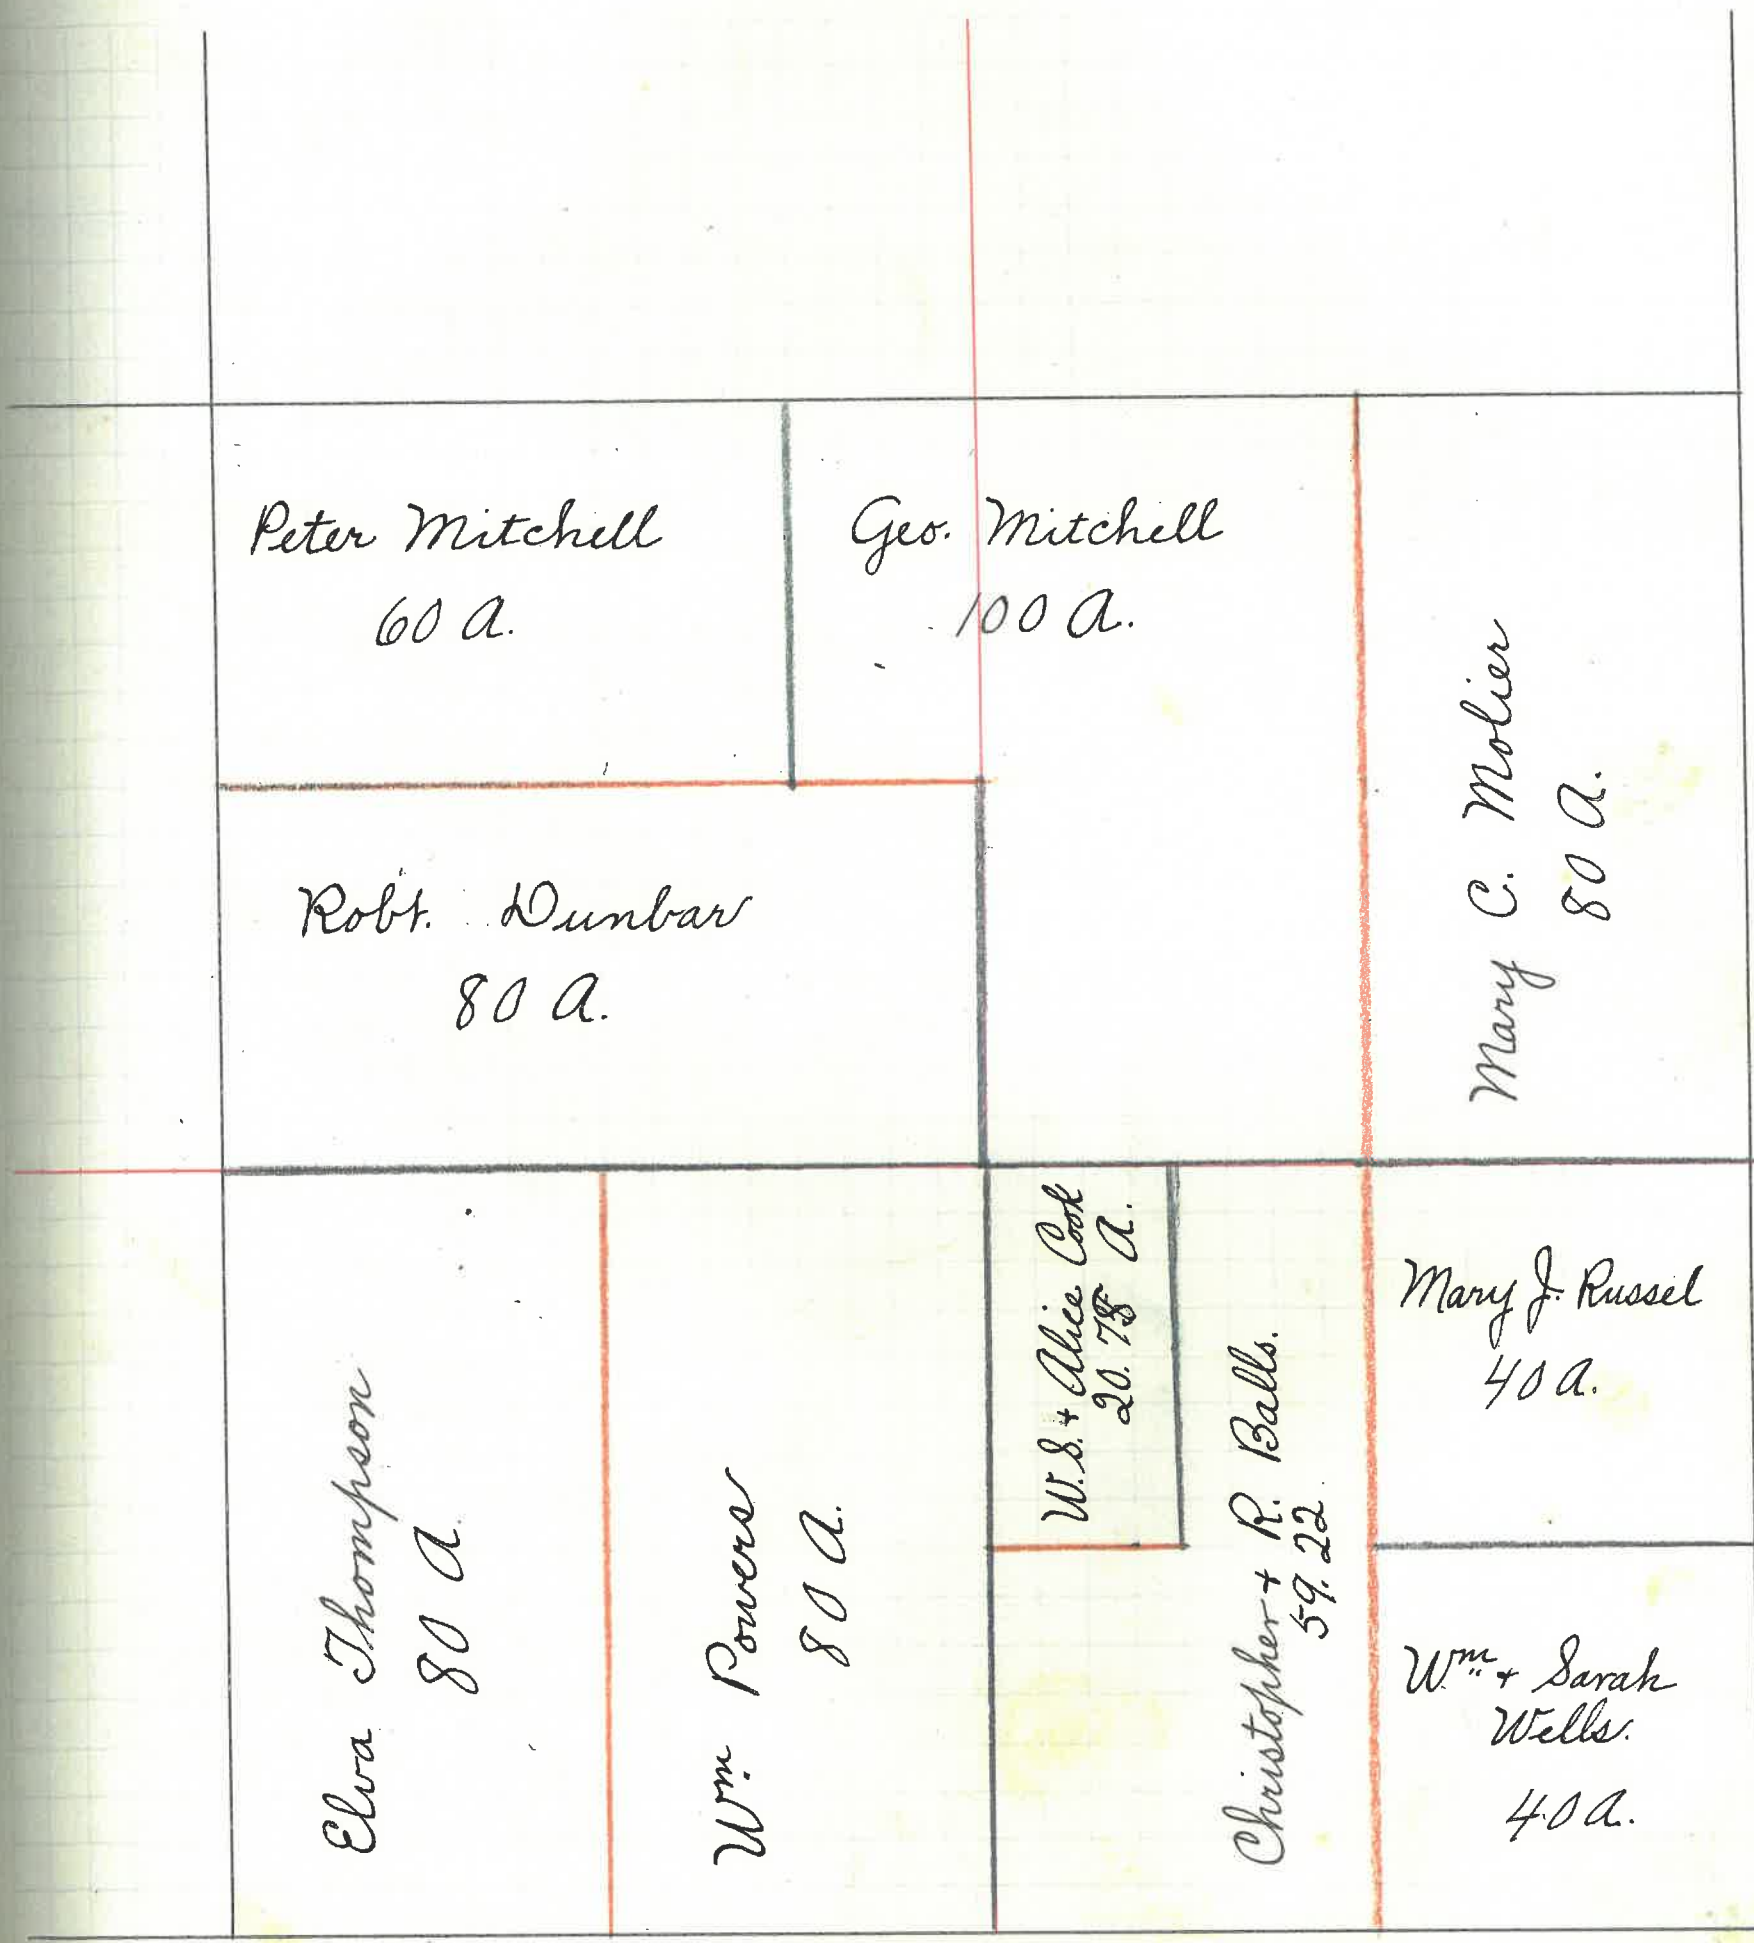 Peter Mitchell
60 A.
Geo. Mitchell
100 A.
Mary C. Molier
80 A.
Robt. Dunbar
80 A.
Elva Thompson
80 A.
Wm. Powers
80 A.
W.S. + Alice Cook
20.78 A.
Christopher + R. Balls.
59.22
Mary J. Russel
40 A.
Wm. + Sarah
Wells.
40 A.